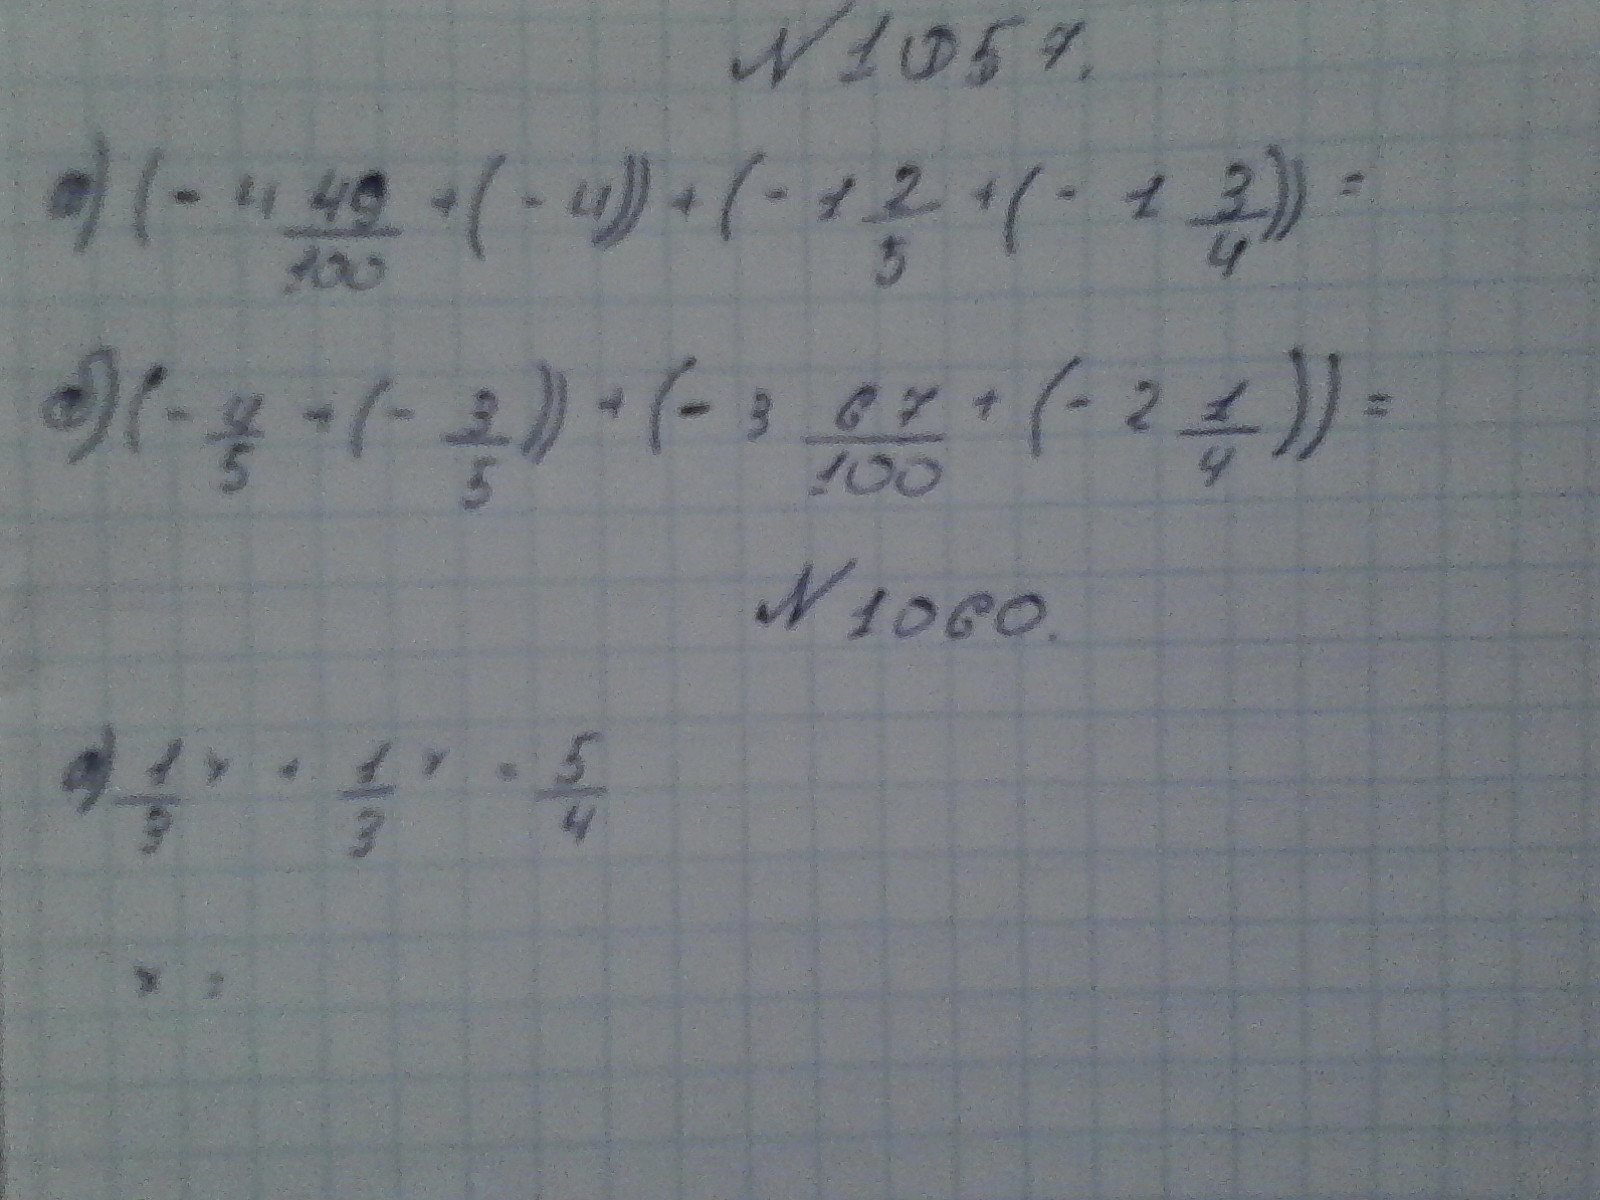 N 1057.
а) (- 4 49/100 + (- 4)) + (- 1 2/5 + (- 1 3/4)) =
б) (- 4/5 + (- 3/5)) + (- 3 67/100 + (- 2 1/4)) =
N 1060.
а) 1/3 x + 1/3 x = 5/4
x =